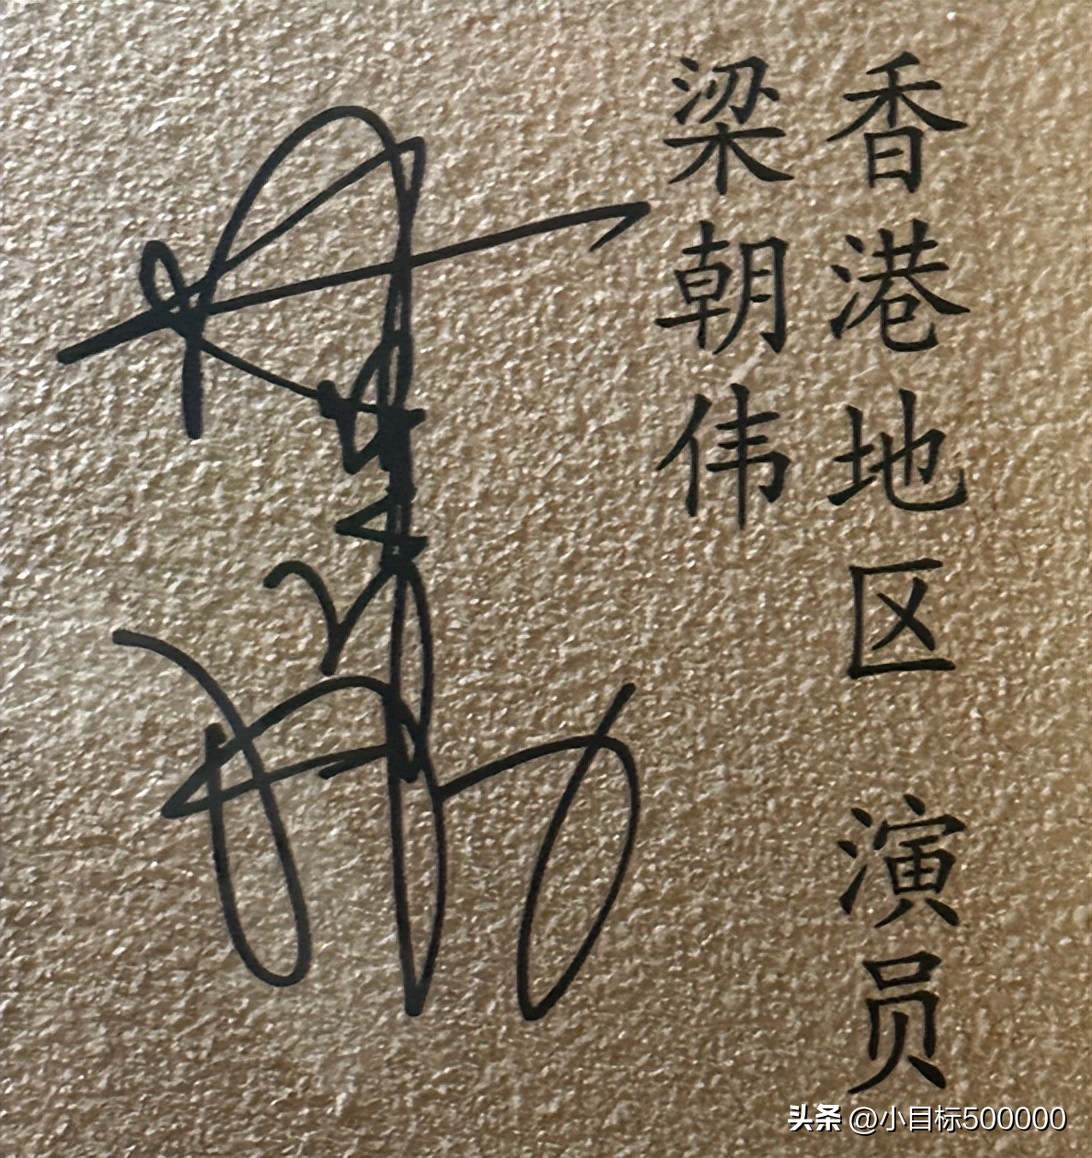 香港地区 演员
梁朝伟
头条 @小目标500000